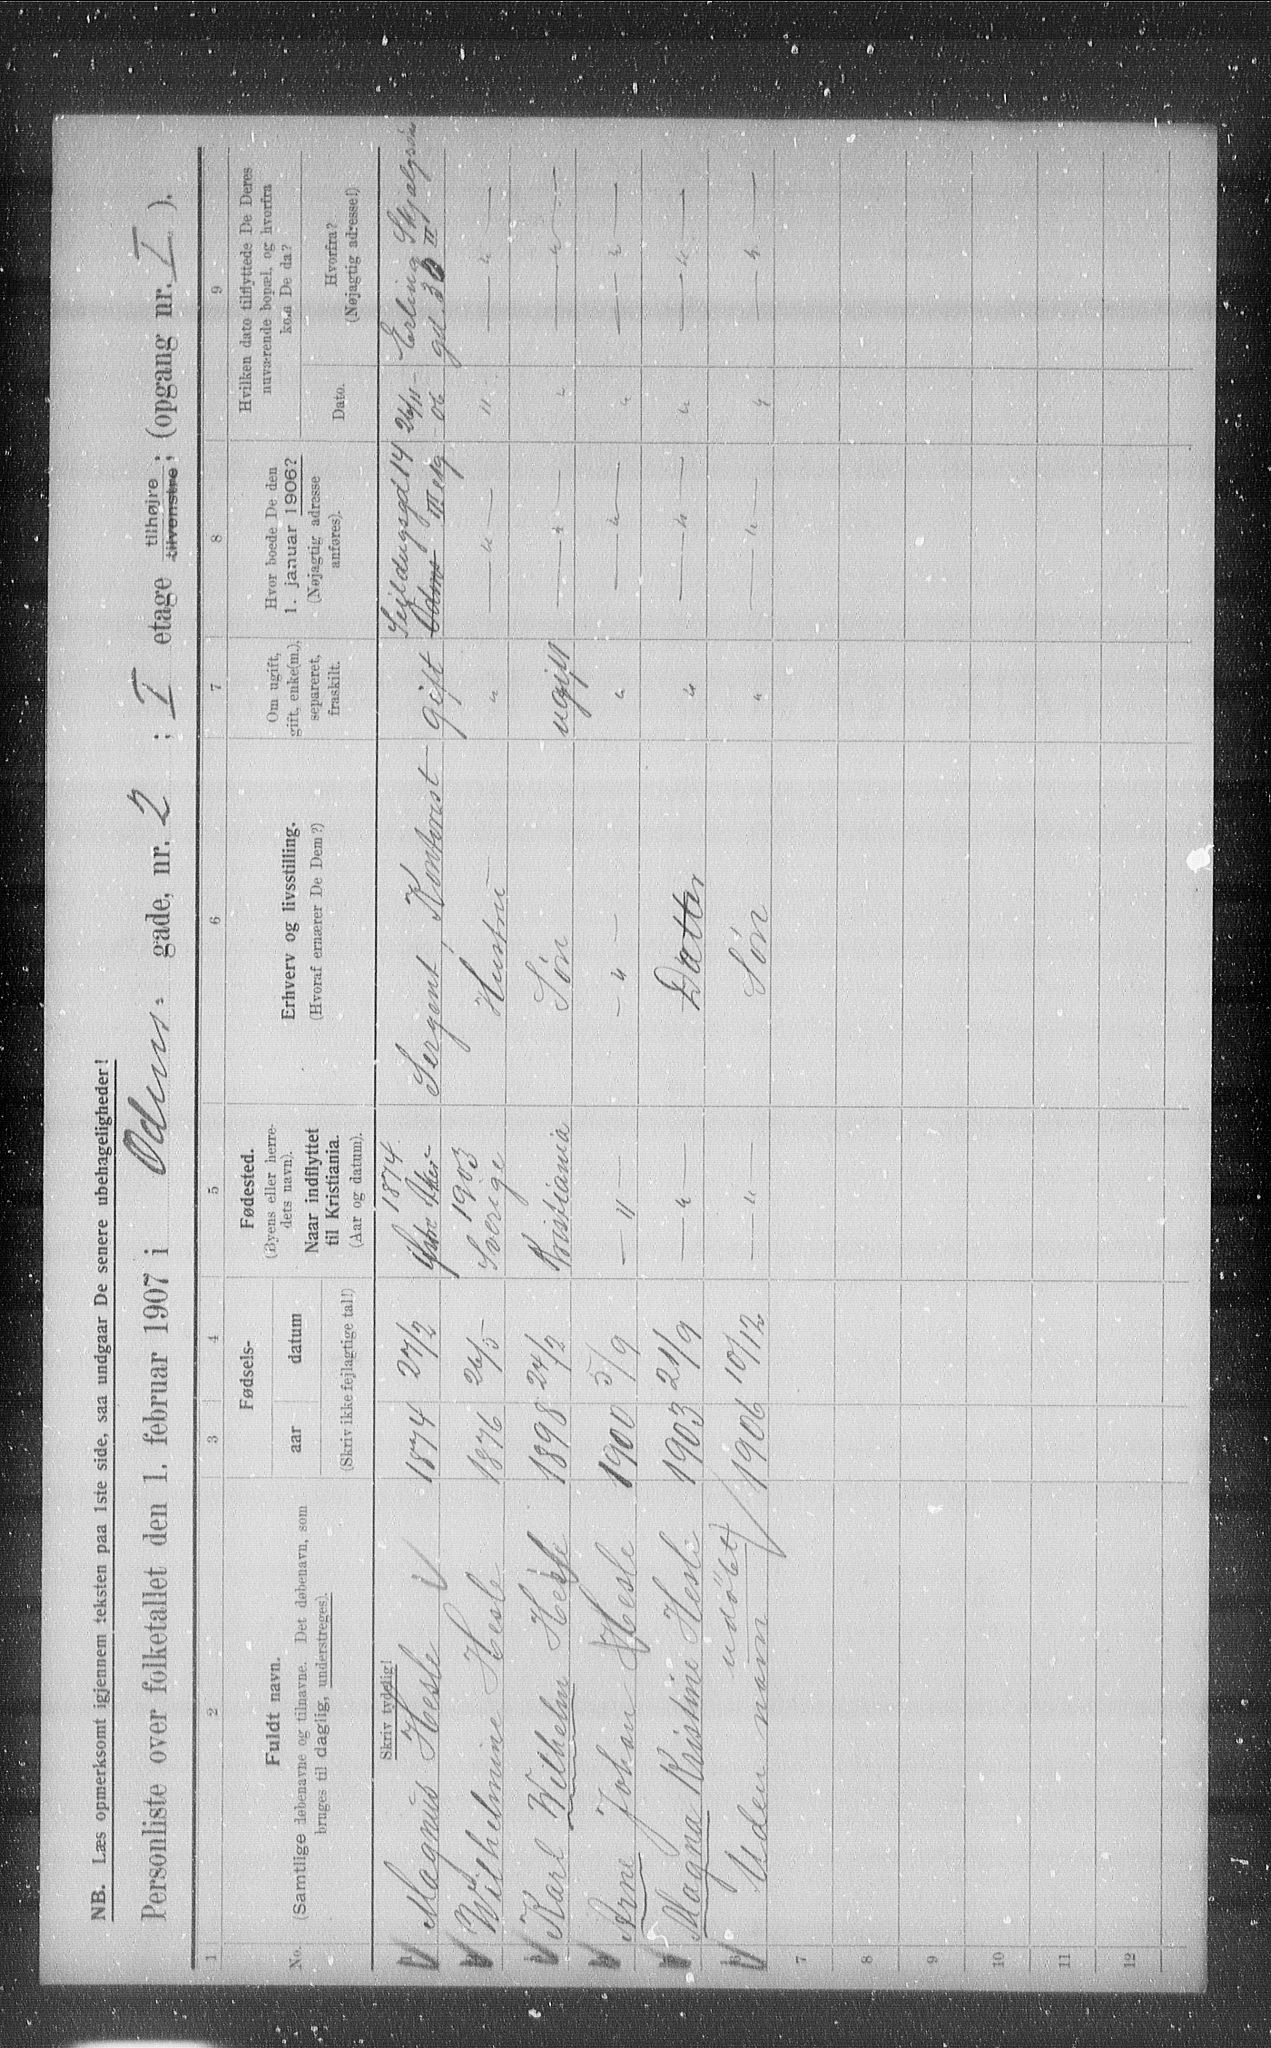 NB. Læs opmerksomt igjennem teksten paa 1ste side, saa undgaar De senere ubehageligheder!
Personliste over folketallet den 1. februar 1907 i Odins- gade, nr. 2 ; I etage tilhøjre tilvenstre ; (opgang nr. I ).
1 2 3 4 5 6 7 8 9
No.
Fuldt navn.
(Samtlige døbenavne og tilnavne. Det døbenavn, som
bruges til daglig, understreges).
Fødsels-
aar datum
(Skriv ikke fejlagtige tal!)
Fødested.
(Byens eller herre-
dets navn).
Naar indflyttet
til Kristiania.
(Aar og datum).
Erhverv og livsstilling.
(Hvoraf ernærer De Dem?)
Om ugift,
gift, enke(m.),
separeret,
fraskilt.
Hvor boede De den
1. januar 1906?
(Nøjagtig adresse
anføres).
Hvilken dato tilflyttede De Deres
nuværende bopæl, og hvorfra
kom De da?
Dato.
Hvorfra?
(Nøjagtig adresse!)
Skriv tydelig!
Magnus Hesle 1874 27/2 1874 Sergent, Kontorist gift Sejldugsgd 14 III etg 26/11-06 Erling Skjalgsøns gd. 3b II
Wilhelmine Hesle 1876 26/5 1903 Sverige Hustru " — " — " — " —
Karl Wilhelm Hesle 1898 24/2 Kristiania Søn ugift — " — " — " —
Arne Johan Hesle 1900 5/9 — " — — " — " — " — " — " —
Magna Kristine Hesle 1903 21/9 — " — Datter " — " — " — " —
Uden navn udøbt 1906 10/12 — " — Søn " — " — " — " —
7
8
9
10
11
12